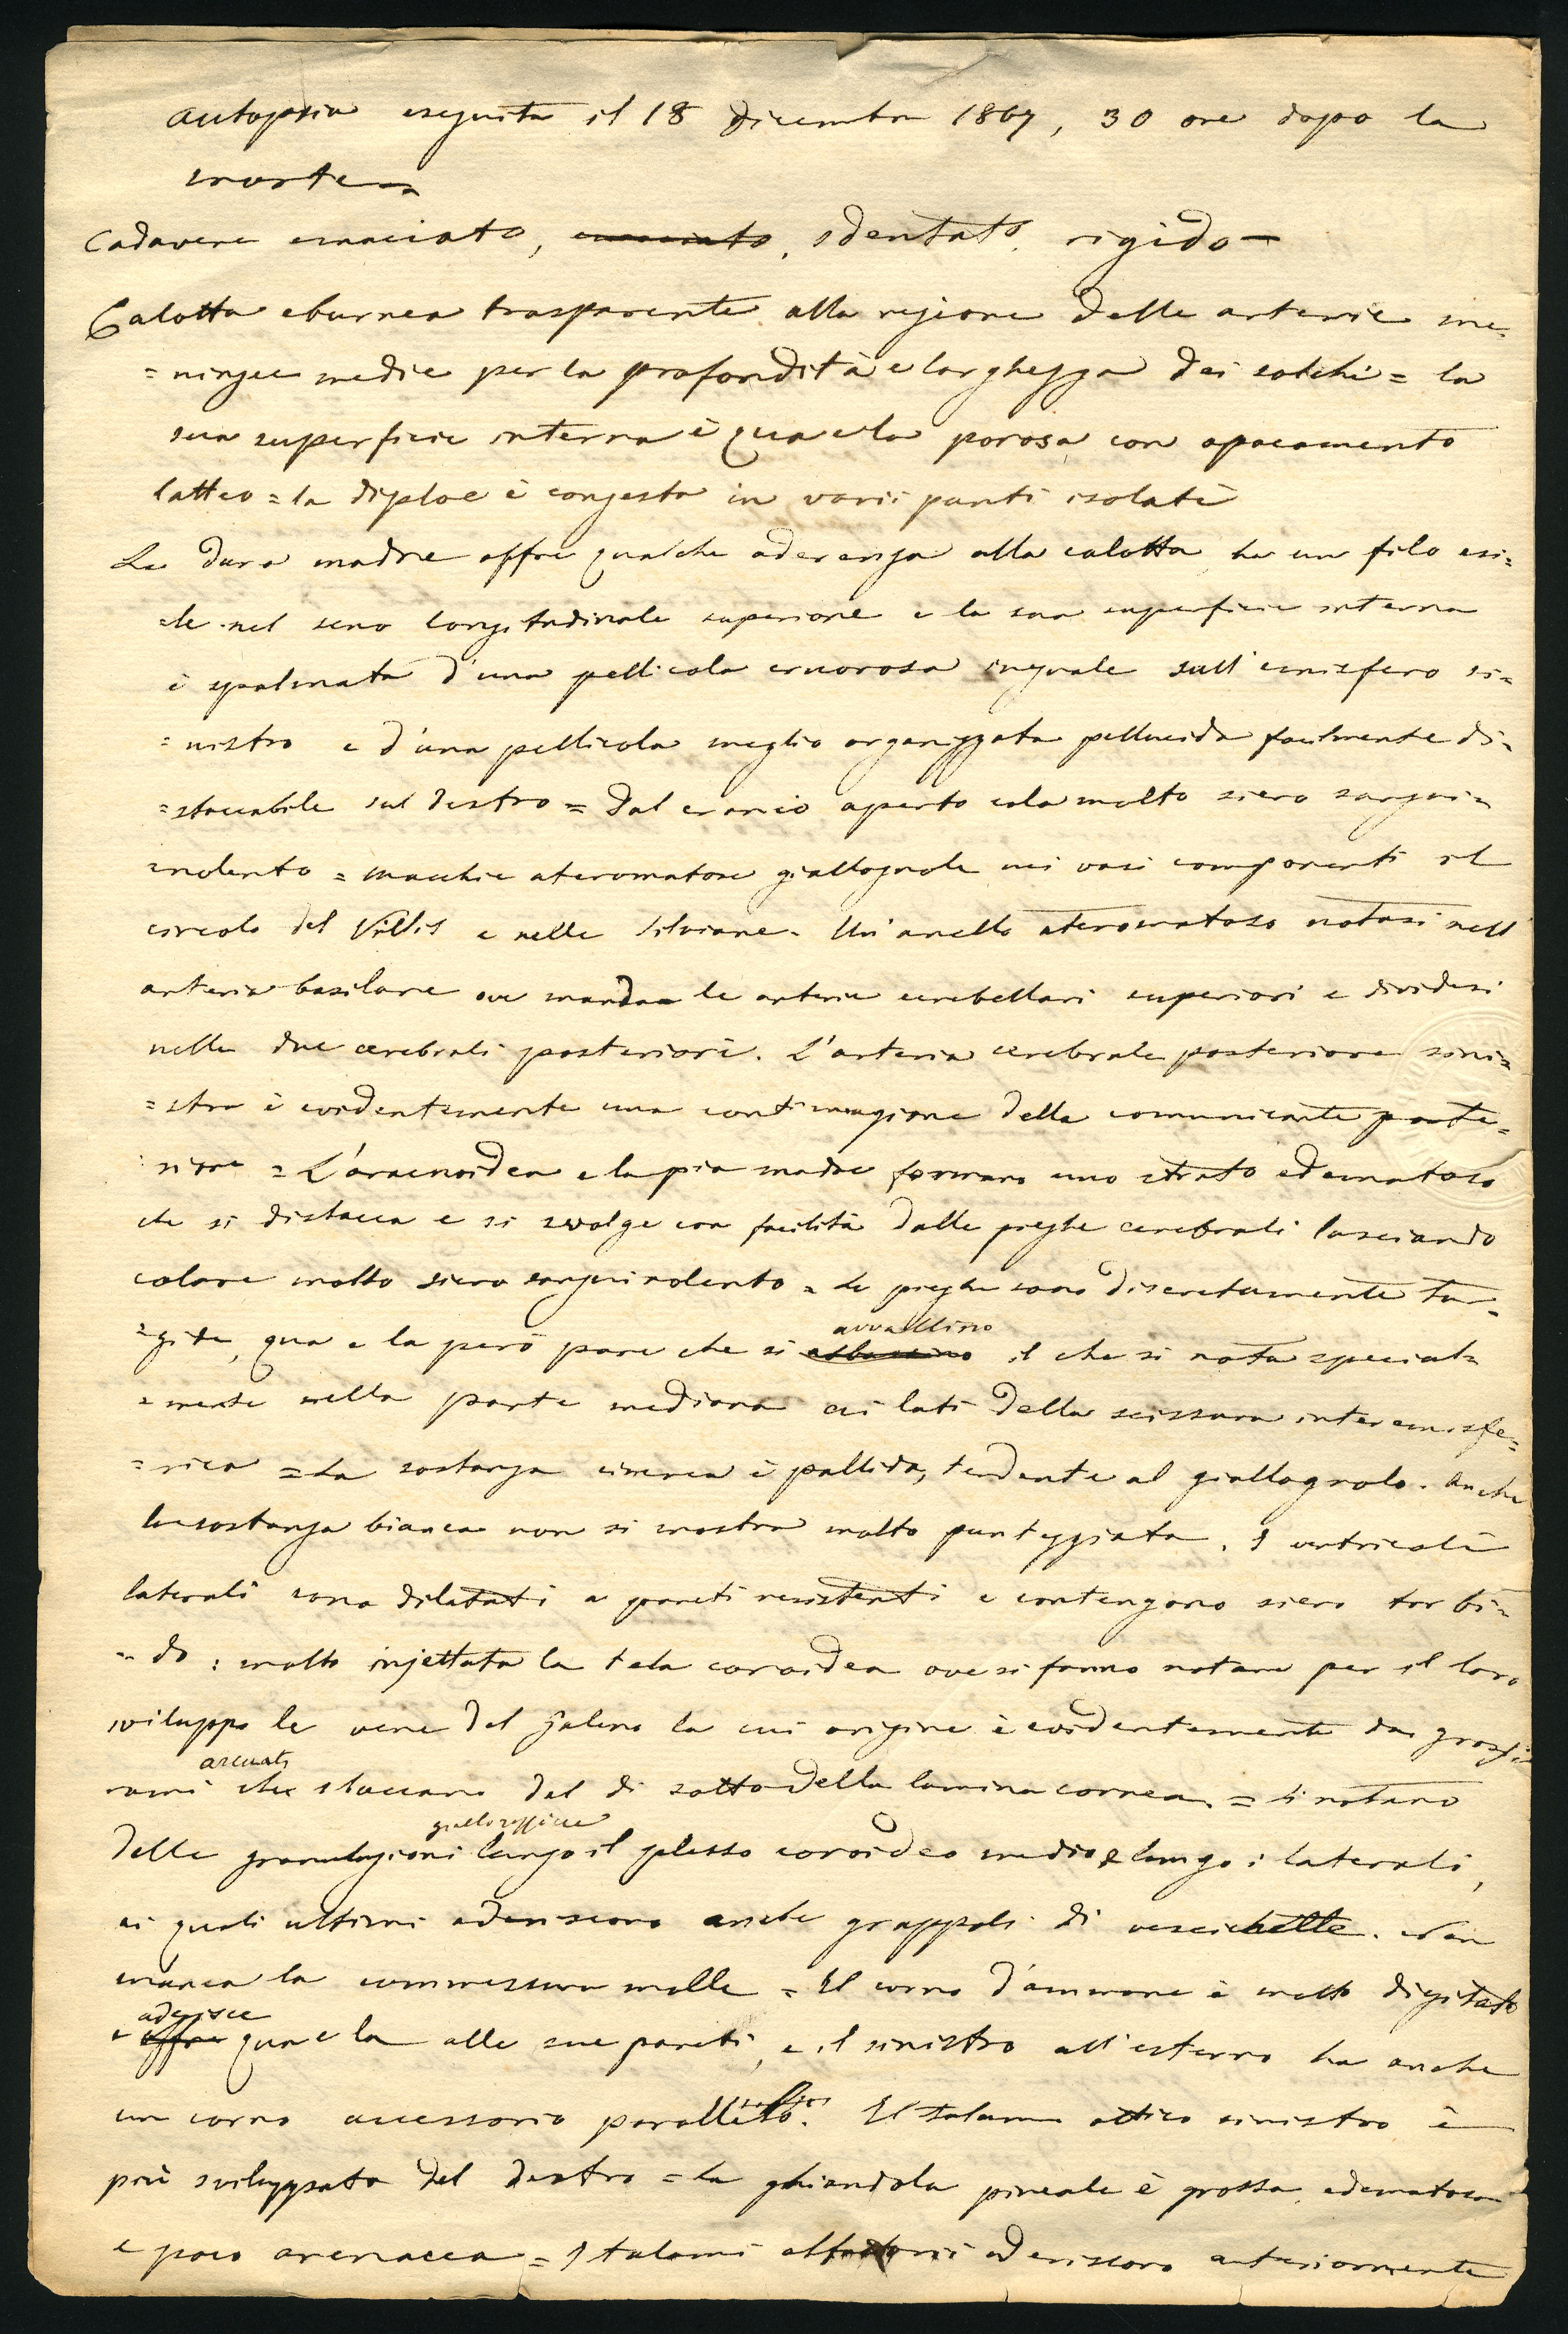 Autopsia eseguita il 18 Dicembre 1867, 30 ore dopo la
morte =
Cadavere emaciato, sdentato, rigido —
Calotta eburnea trasparente alla regione delle arterie me=
=ningee medie per la profondità e larghezza dei solchi = la
sua superficie interna è qua e la porosa con opacamento
latteo = la diploe è congesta in varii punti isolati
La dura madre offre qualche aderenza alla calotta, ha un filo esi=
=le nel seno longitudinale superiore e la sua superficie interna
è spalmata d'una pellicola cruorosa ineguale sull'emisfero si=
=nistro e d'una pellicola meglio organizzata pellucida facilmente di=
=staccabile sul destro = Dal cranio aperto cola molto siero sangui=
nolento = macchie ateromatose giallognole nei vasi componenti il
circolo del Villis e nelle silviane. Un'anello ateromatoso notasi nell'
arteria basilare ove manda le arterie cerebellari superiori e dividesi
nelle due cerebrali posteriori. L'arteria cerebrale posteriore sini=
=stra è evidentemente una continuazione della comunicante poste=
riore = L'aracnoidea e la pia madre formano uno strato edematoso
che si distacca e si svolge con facilità dalle pieghe cerebrali lasciando
colare molto siero sanguinolento = Le pieghe sono discretamente tur=
=gide, qua e la però pare che si avvallino il che si nota special=
=mente nella parte mediana ai lati della scissura interemisfe=
=rica = La sostanza cinerea è pallida, tendente al giallognolo. Anche
la sostanza bianca non si mostra molto punteggiata. I ventricoli
laterali sono dilatati a pareti resistenti e contengono siero torbi=
=do : molto injettata la tela coroidea ove si fanno notare per il loro
sviluppo le vene del Galeno la cui origine è evidentemente da grossi
rami arcuati che staccano dal di sotto della lamina cornea = Si notano
delle granulazioni giallorossiccie lungo il plesso coroideo medio e lungo i laterali,
ai quali ultimi aderiscono anche grappoli di vescichette. Non
manca la commessura molle = Il corno d'ammone è molto digitato
e aderisce qua e la alle sue pareti, e il sinistro all'esterno ha anche
un corno accessorio parallelo. Il talamo ottico sinistro è
più sviluppato del destro = la ghiandola pineale è grossa, edematosa
e poco arenacea = I talami aderiscono anteriormente